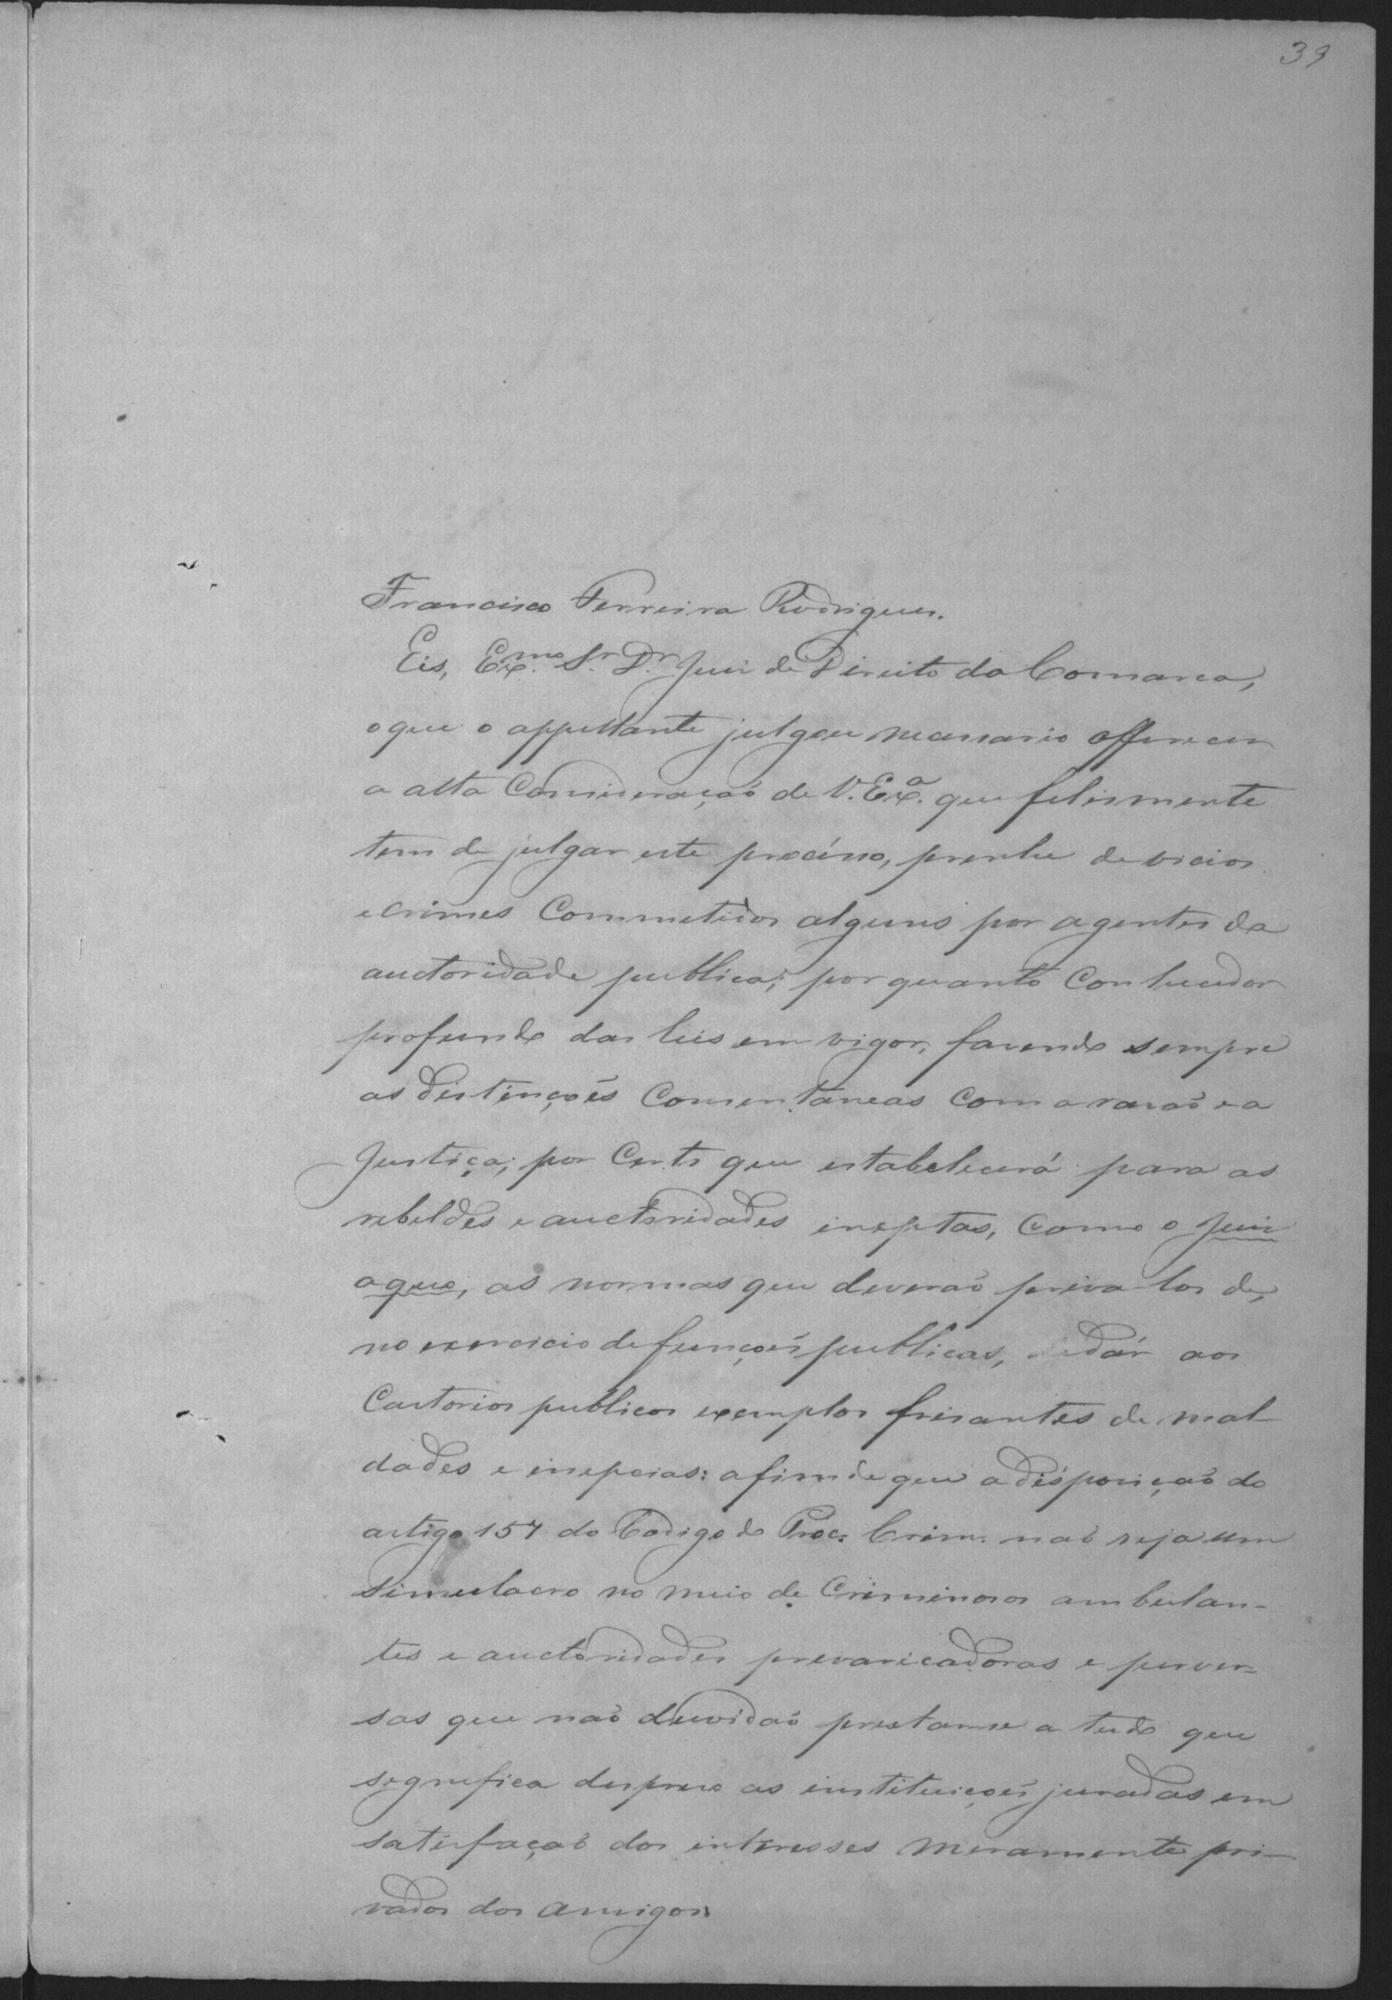 39
Francisco Ferreira Rodrigues.
Eis, Ex.mo Sr. Dr. Juiz de Direito da Comarca,
o que o appellante julgou necessario offerecer
a alta Consideração de V. Ex.a que felismente
tem de julgar este procésso, prenhe de vicios
e crimes Commetidos alguns por agentes da
auctoridade publica; por quanto Conhecedor
profundo das leis em vigor, fazendo sempre
as distinções Comentaneas com a rasão e a
Justiça; por Certo que estabelecerá para as
rebeldes e auctoridades ineptas, Como o Juiz
a quo, as normas que deverão priva-los de,
no exercicio de funções publicas, dár aos
Cartorios publicos exemplos frisantes de mal-
dades e inepcias: afim de que a disposição do
artigo 157 do Codigo do Proc. Crim. não seja um
simulacro no meio de Criminosos ambulan-
tes e auctoridades prevaricadoras e perver-
sas que não duvidão prestarse a tudo que
segnefica despreso as instituições juradas em
satisfação dos interesses meramente pri-
vados dos amigos.